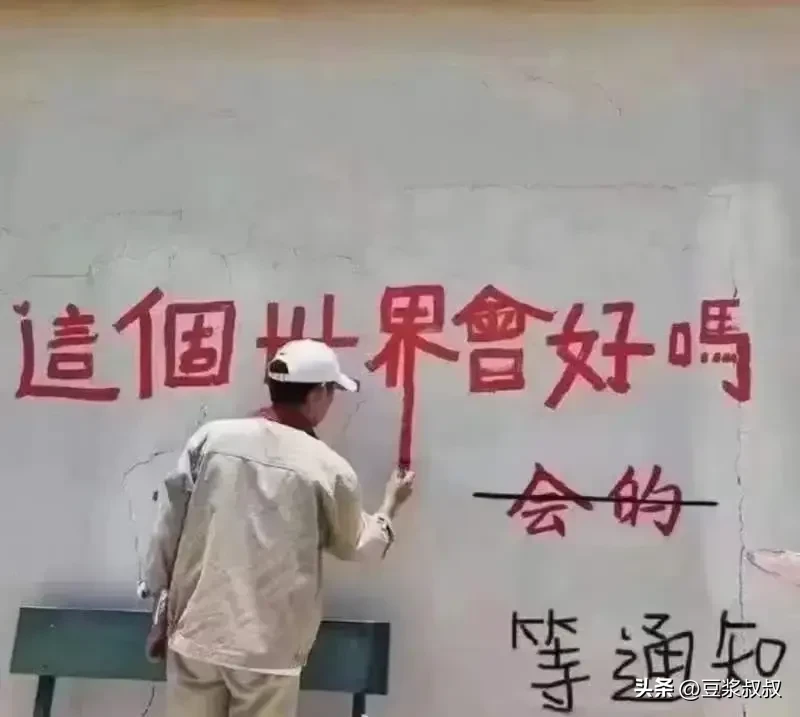 這個世界會好嗎
会的
等通知
头条 @豆浆叔叔